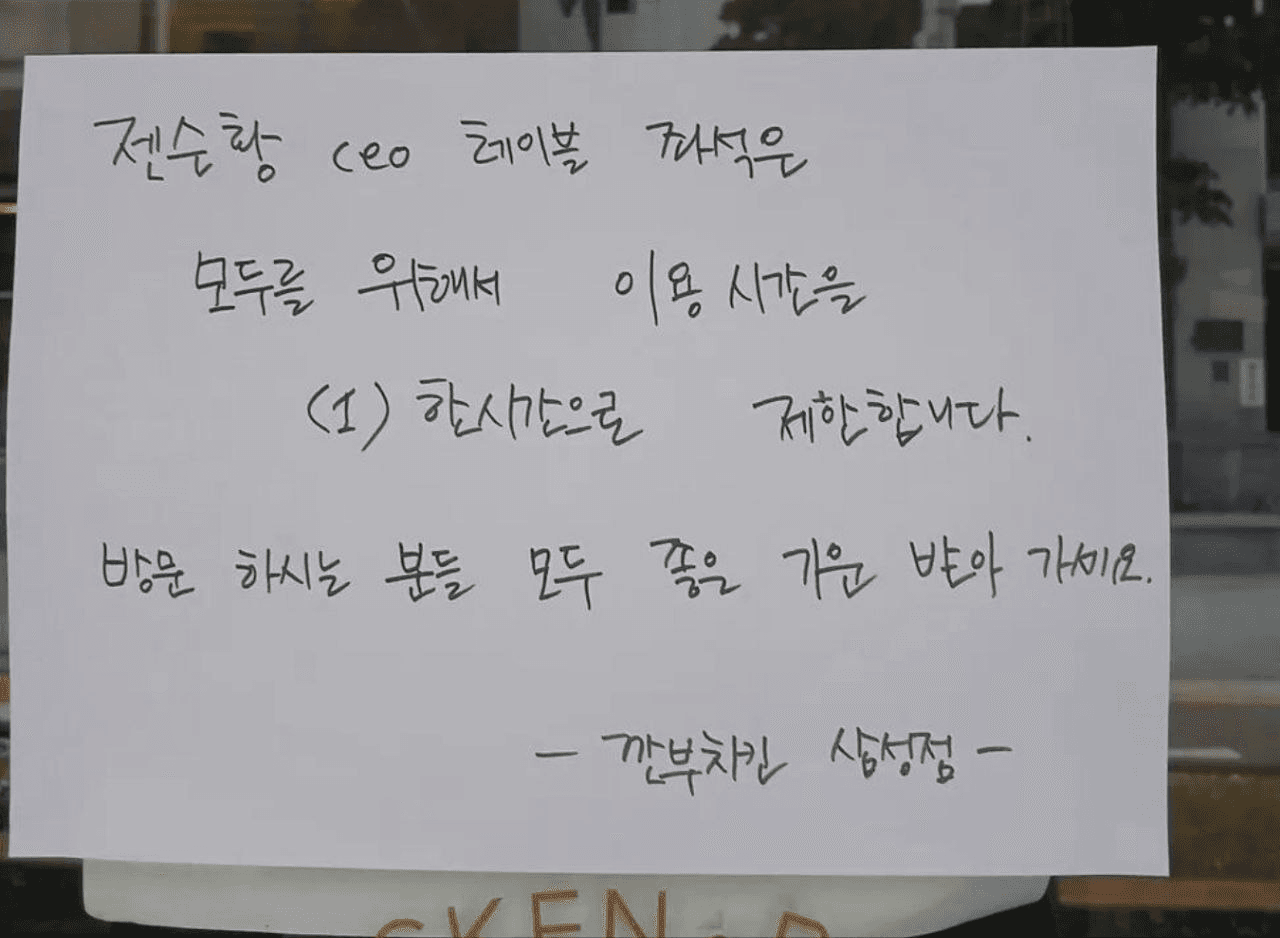 젠슨황 ceo 테이블 좌석은
모두를 위해서 이용 시간을
(1) 한시간으로 제한합니다.
방문 하시는 분들 모두 좋은 기운 받아 가세요.
- 깐부치킨 삼성점 -